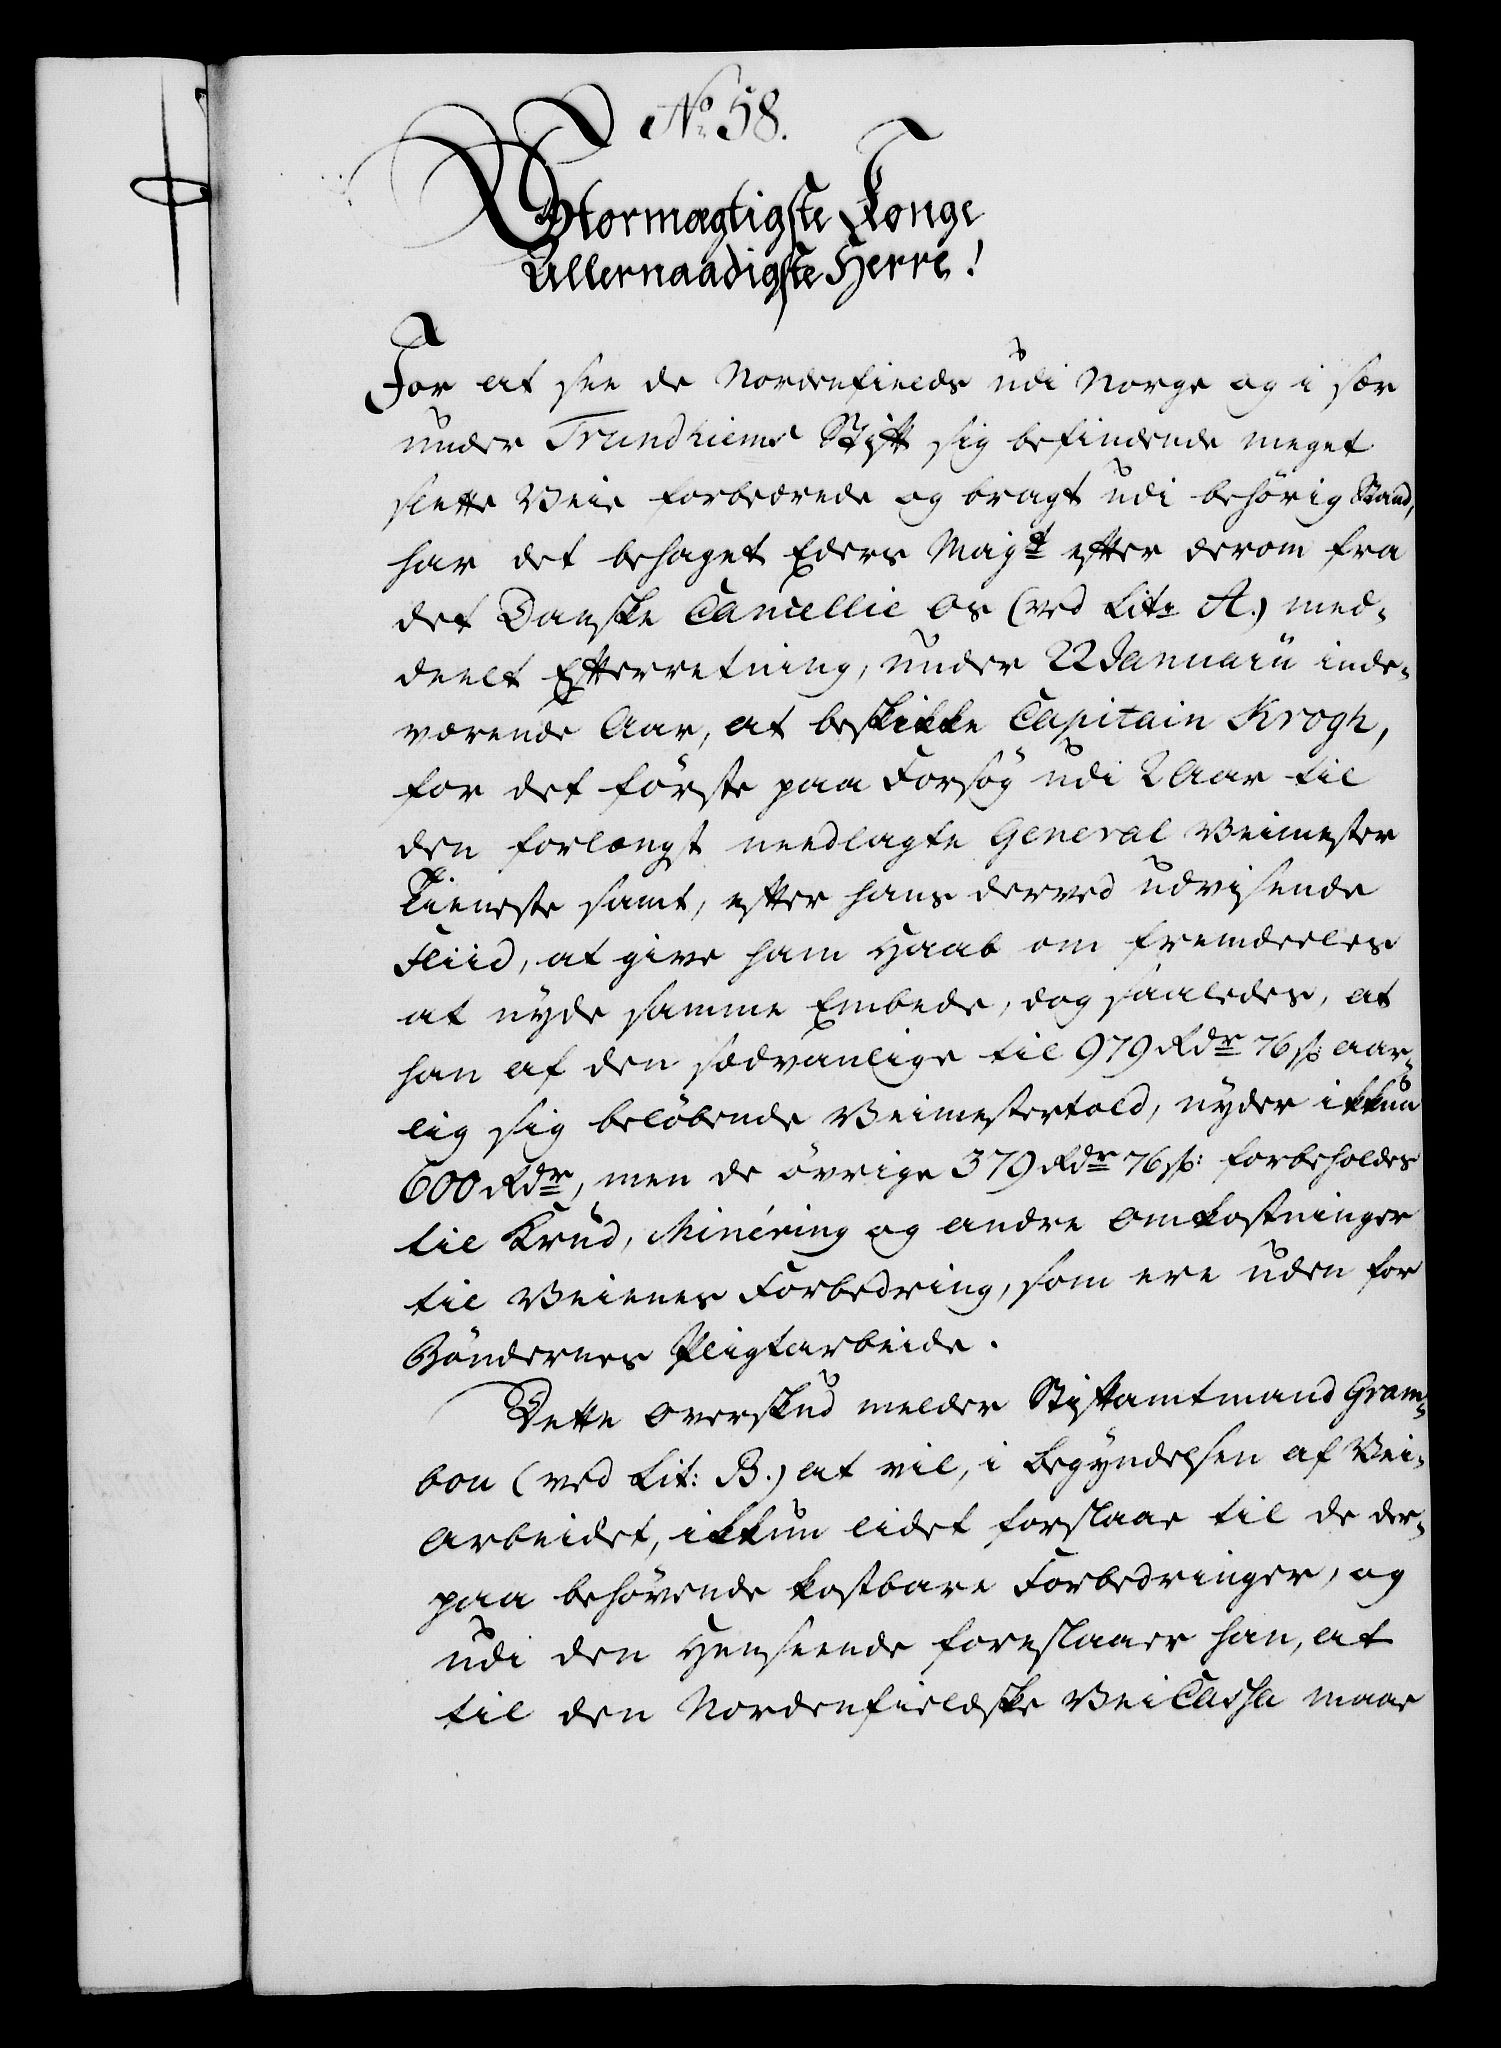 No. 58.
Stormægtigste Konge
Allernaadigste Herre!
For at see de Nordenfields udi Norge og i sær
under Trundhiems Stift sig befindende meget
slette Veie forbedrede og bragt udi behørig Stand,
har det behaget Eders Majst efter derom fra
det Danske Cancellie Os (ved Litr A.) med-
deelt Efterretning, under 22 Januarii inde-
værende Aar, at beskikke Capitain Krogh,
for det første paa Forsøg udi 2 Aar til
den forlængst needlagte General Veimester
Tieneste samt, efter hans derved udvisende
Fliid, at give ham Haab om fremdeeles
at nyde samme Embede, dog saaledes, at
han af den sædvanlige til 979 Rdr 76 s: aar-
lig sig beløbende Veimestertold, nyder ikkun
600 Rdr, men de øvrige 379 Rdr 76 s: forbeholdes
til Krud, Minéring og andre Omkostninger
til Veienes Forbedring, som ere uden for
Bøndernes Pligtarbeide.
Dette Overskud melder Stiftamtmand Gram-
bou (ved Lit: B.) at vil, i Begyndelsen af Vei-
Arbeidet, ikkun lidet forslaae til de der-
paa behøvende kostbare Forbedringer, og
udi den Henseende foreslaaer han, at
til den Nordenfieldske Vei Cassa maae